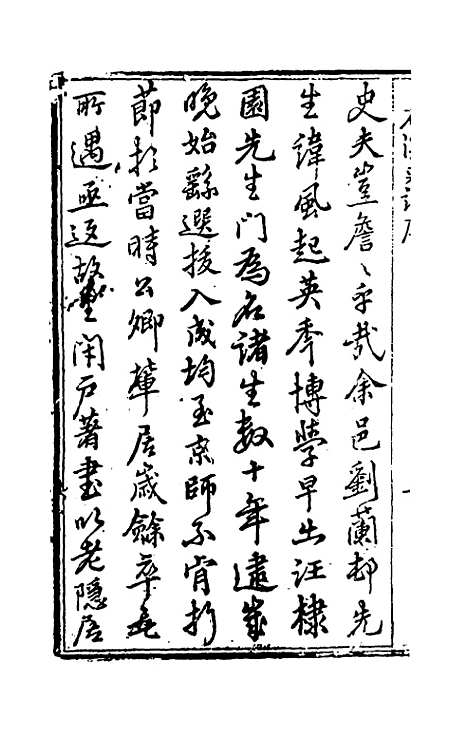 史夫豈詹〻乎哉余邑劉蘭邨先
生諱風起英季博學早出汪棣
園先生門為名諸生數十年逮歲
晚始繇選拔入成均至京師不肯折
節於當時公卿輩居歲餘卒無
所遇亟返故里閉戶著書以老隱居